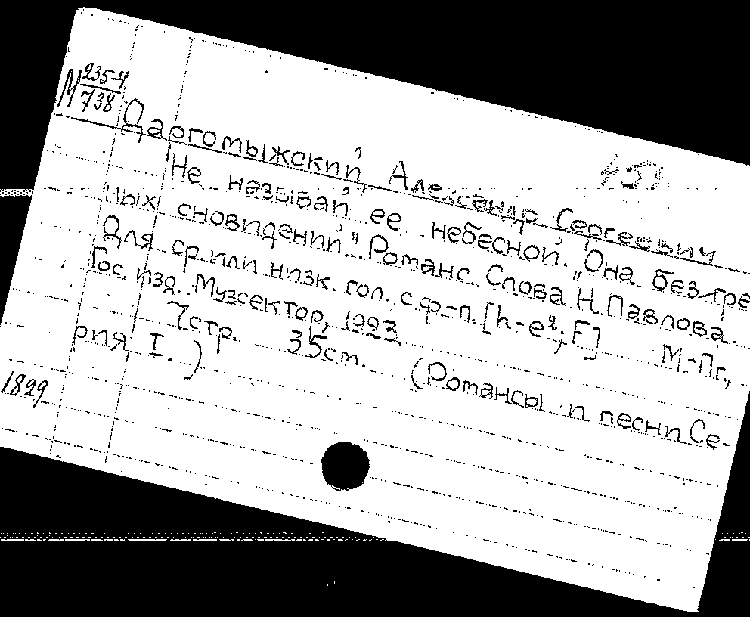 М 235-4
738
Даргомыжский, Александр Сергеевич
Не называй ее небесной. „Она безгре
ных сновидений." Романс. Слова Н. Павлова.
Для ср. или низк. гол. с ф-п. [h-e², F] М.-Пг.,
Гос. изд. Музсектор, 1923
7 стр. 35 см. (Романсы и песни Се-
рия I.)
1829